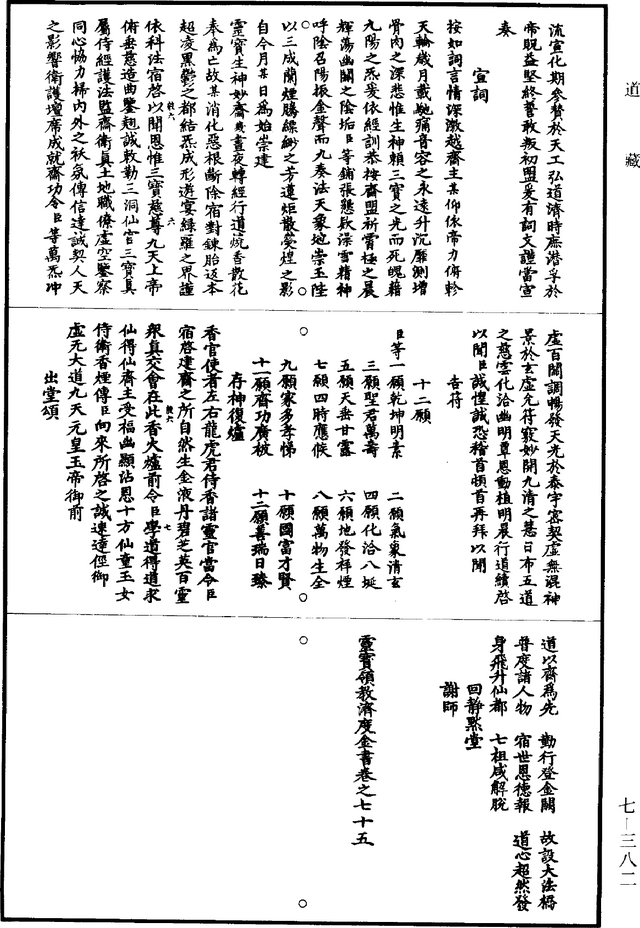 道藏
流宣化期參贊於天工弘道濟時庶潛孚於
帝貺益堅終誓敢叛初盟爰有詞文謹當宣
奏
宣詞
按如詞言情深激越齋主某仰依帝力俯軫
天輪歲月載馳痛音容之永遠升沉靡測增
骨肉之深悲惟生神頼三寶之光而死魄藉
九陽之炁爰依經訓恭按齋盟祈霄極之晨
輝蕩幽關之陰垢臣等鋪張懇欵深雪精神
呼陰召陽振金聲而九奏法天象地崇玉陛
以三成蘭煙騰縹緲之芳蓮炬散熒煌之影
自今月某日爲始崇建
靈寶生神妙齋幾晝夜轉經行道燒香散花
奉爲亡故某消化惡根斷除宿對鍊胎返本
超凌黑鬱之都結炁成形遊宴綠羅之界謹
依科法宿啓以聞恩惟三寶慈尊九天上帝
俯垂慈造曲鑒翹誠敕勒三洞仙官三寶真
屬侍經護法監齋衛真土地職僚虛空鑒察
同心恊力掃內外之祅氛傳信達誠契人天
之影響衛護壇席成就齋功令臣等萬炁冲
虛百關調暢發天光於泰宇密契虛無混神
景於玄虛允符竅妙開九清之慧日布五道
之慈雲化洽幽明覃恩動植明晨行道續啓
以聞臣誠惶誠恐稽首頓首再拜以聞
告符
十二願
臣等一願乾坤明素 二願氣象清玄
三願聖君萬壽 四願化洽八埏
五願天垂甘露 六願地發祥煙
七願四時應候 八願萬物生全
九願家多孝悌 十願國富才賢
十一願齋功廣被 十二願善瑞日臻
存神復爐
香官使者左右龍虎君侍香諸靈官當令臣
宿啓建齋之所自然生金液丹碧芝英百靈
衆真交會在此香火爐前令臣學道得道求
仙得仙齋主受福幽顯沾恩十方仙童玉女
侍衛香煙傳臣向來所啓之誠速達徑御
虛无大道九天元皇玉帝御前
出堂頌
道以齋爲先 勤行登金闕 故設大法橋
普度諸人物 宿世恩德報 道心超然發
身飛升仙都 七祖咸解脫
回靜默堂
謝師
靈寶領教濟度金書卷之七十五
七-三八二